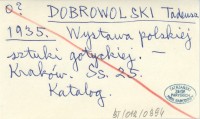 o?
DOBROWOLSKI Tadeusz
1935. Wystawa polskiej
sztuki gotyckiej. —
Kraków. Ss. 25.
Katalog.